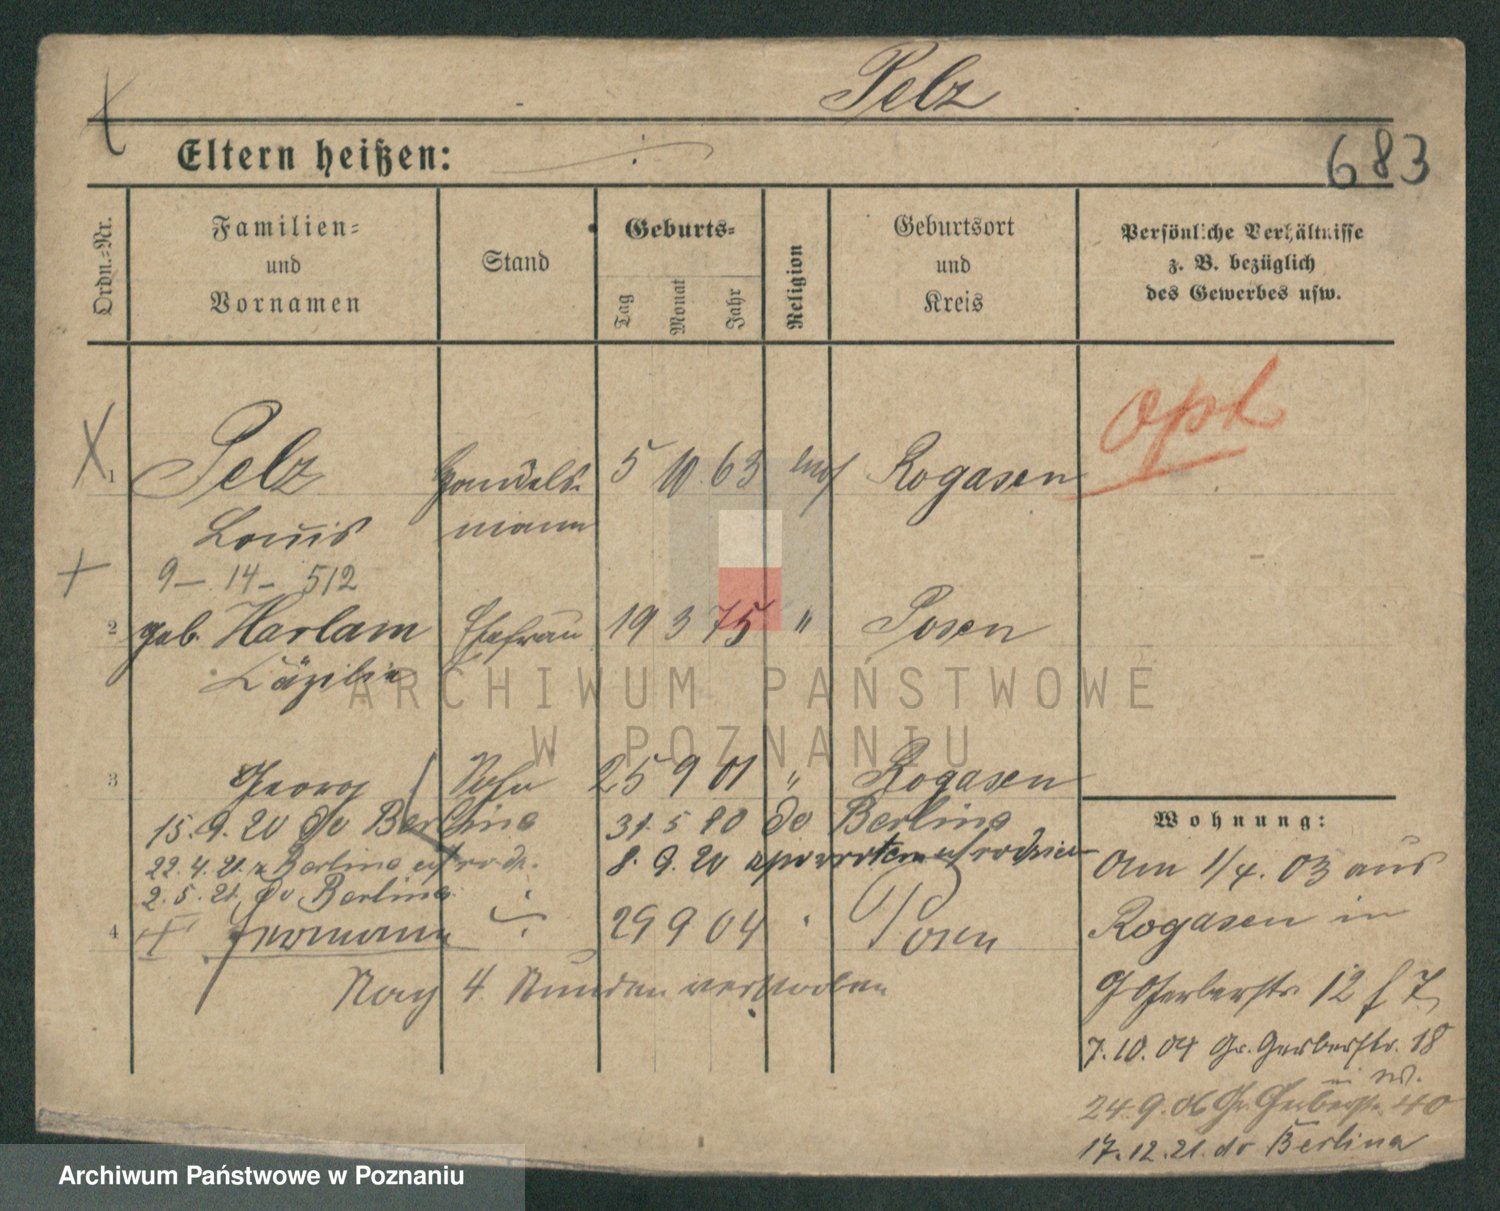 Pelz
683
Eltern heißen:
Ordn.-Nr.
Familien-
und
Vornamen
Stand
Geburts-
Tag
Monat
Jahr
Religion
Geburtsort
und
Kreis
Persönliche Verhältnisse
z. B. bezüglich
des Gewerbes usw.
1 Pelz Handels- 5 10 63 mos Rogasen
Louis mann
9 - 14 - 512
2 geb. Harlam Ehefrau 19 3 75 " Posen
Cäzilie
3 Georg Sohn 25 9 01 " Rogasen
15. 9. 20 do Berlina 31. 5 20 do Berlina
22. 4. 21. z Berlina 8. 9. 20 z powrotem
2. 5. 21. do Berlina
4 Hermann 29 9 04 Posen
Nach 4 Stunden verstorben
Wohnung:
Am 1/4. 03 aus
Rogasen in
G Gerberstr. 12
7. 10. 04 Gr. Gerberstr. 18
24. 9. 06 Gr. Gerberstr. 40
17. 12. 21. do Berlina
ARCHIWUM PAŃSTWOWE
W POZNANIU
Archiwum Państwowe w Poznaniu